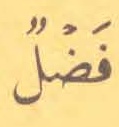 فَضْلٌ